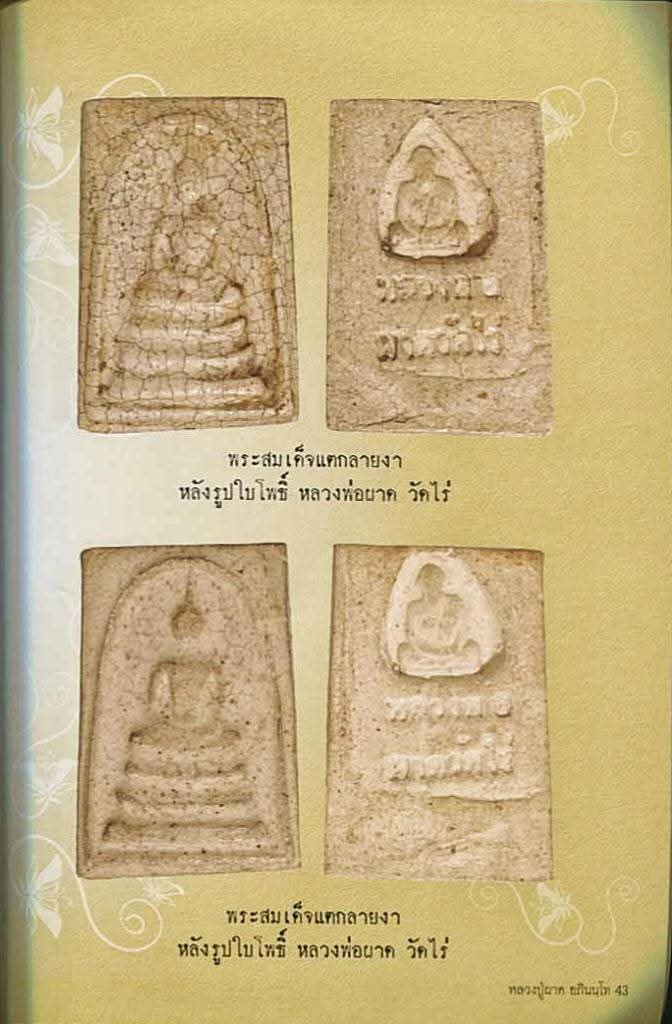 หลวงพ่อ
ผาดวัดไร่
พระสมเด็จแตกลายงา
หลังรูปใบโพธิ์ หลวงพ่อผาด วัดไร่
หลวงพ่อ
ผาดวัดไร่
พระสมเด็จแตกลายงา
หลังรูปใบโพธิ์ หลวงพ่อผาด วัดไร่
หลวงปู่ผาด อภินนฺโท 43